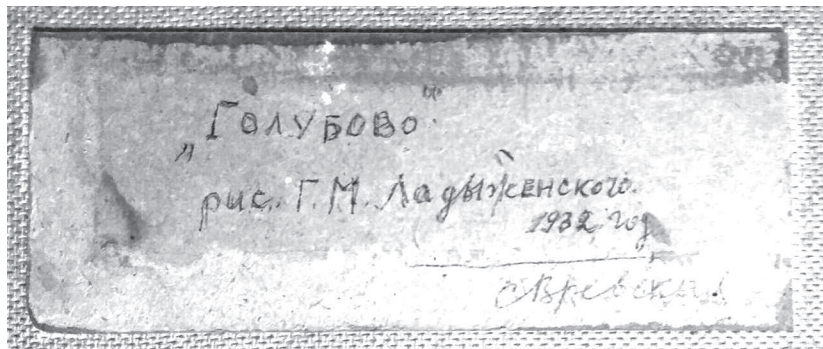 „Голубово“
рис. Г. М. Ладыженского.
1932 год
Вревская